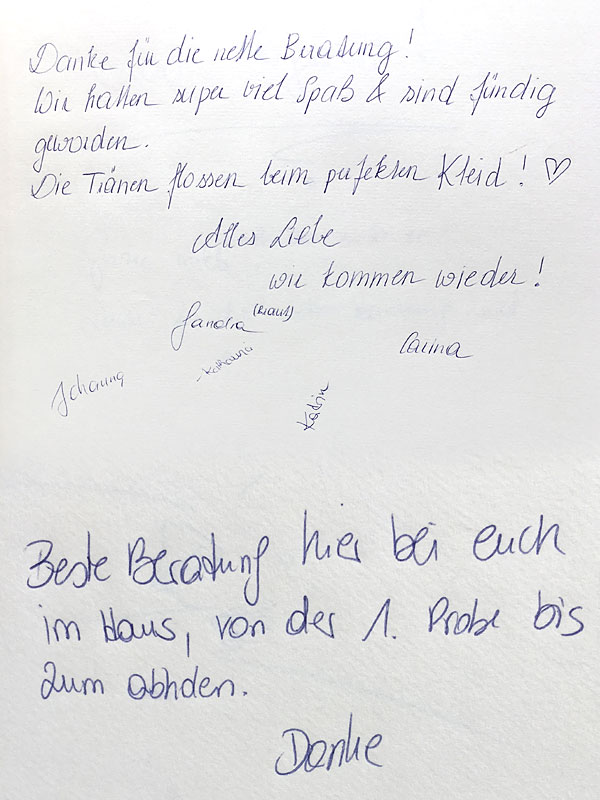 Danke für die nette Beratung!
Wir hatten super viel Spaß & sind fündig
geworden.
Die Tränen flossen beim perfekten Kleid! ♡
Alles Liebe
wir kommen wieder!
Sandra (Braut)
Katharina
Carina
Katrin
Beste Beratung hier bei euch
im Haus, von der 1. Probe bis
zum abhden.
Danke